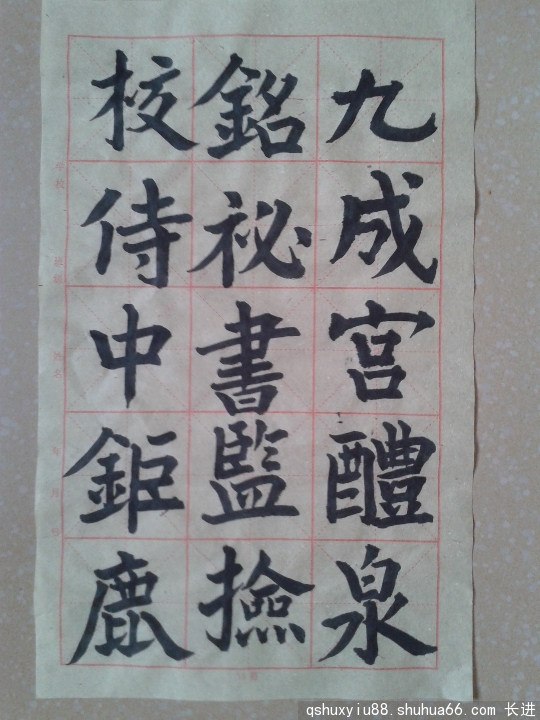 九成宮醴泉
銘祕書監撿
校侍中鉅鹿
qshuxyiu88.shuhua66.com 长进